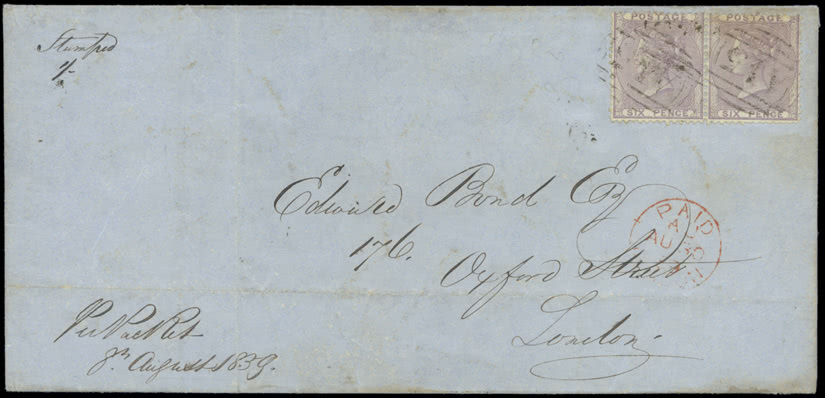 Stamped
1/-
POSTAGE POSTAGE
SIX PENCE SIX PENCE
Edward Bond Esq
176.
Oxford Street
London.
PAID
AU
Per Packet
August 1859.